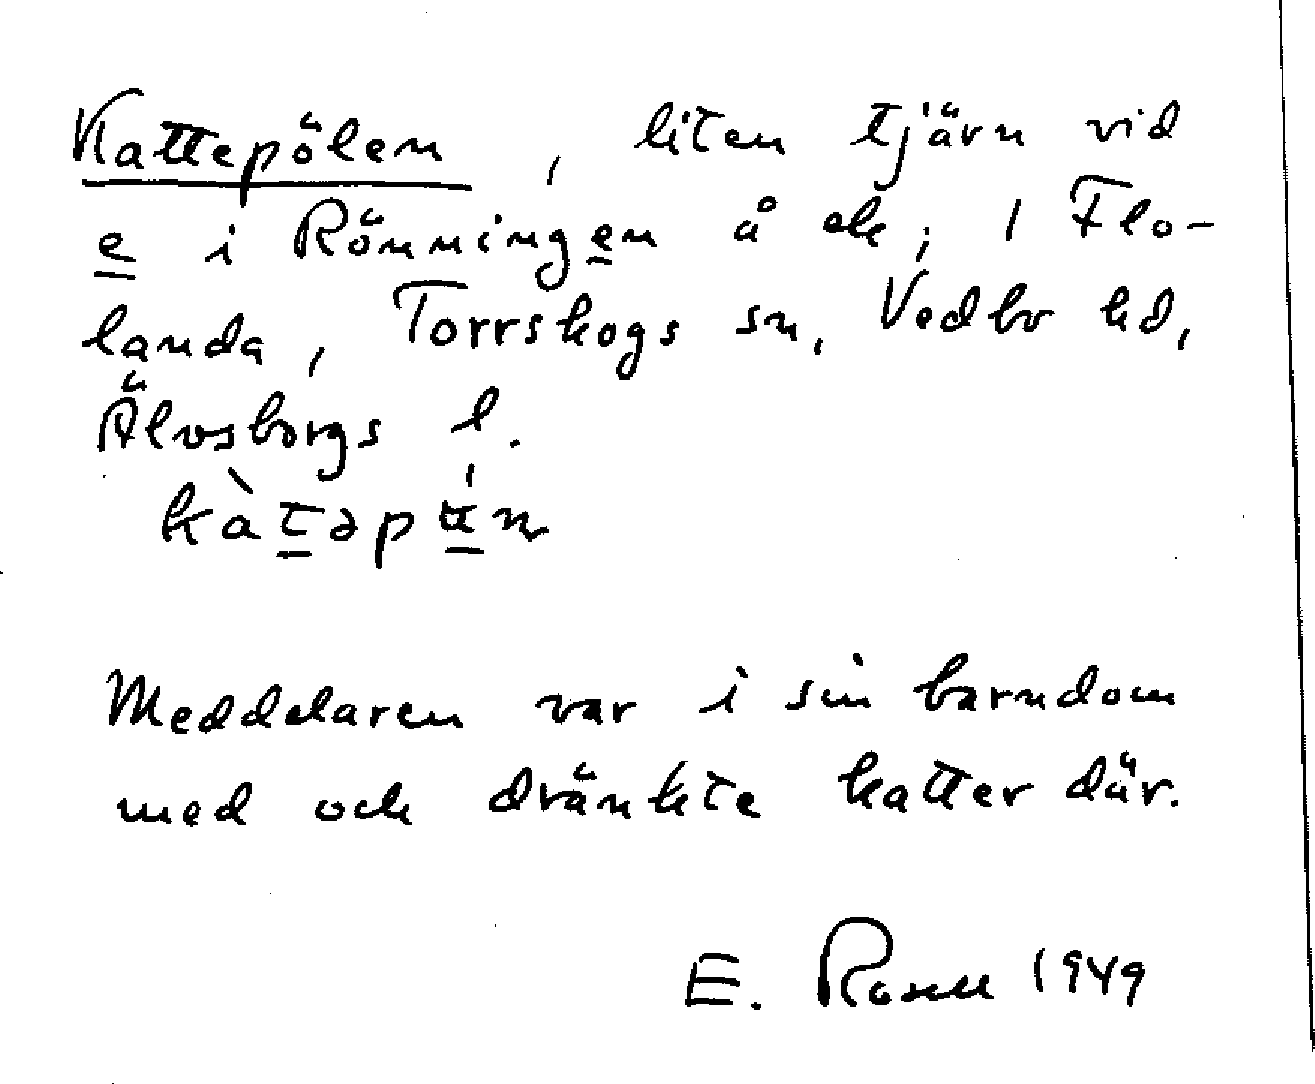 Kattepölen, liten tjärn vid
e i Rönningen å ek, 1 Flo-
landa, Torrskogs sn, Vedbo hd,
Älvsborgs l.
kàtəpn
Meddelaren var i sin barndom
med och dränkte katter där.
E. Rosell 1949